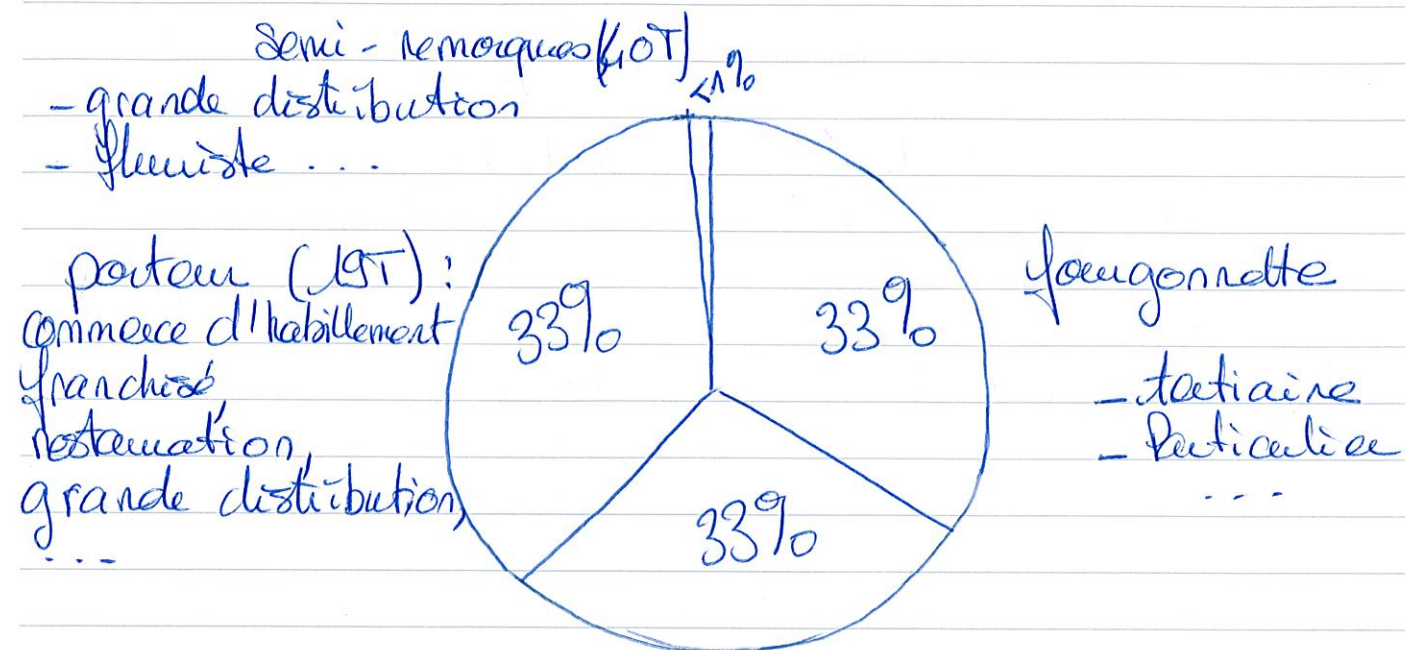 Semi-remorques (40T)
<1%
- grande distribution
- fleuriste ...
porteur (19T) :
commerce d'habillement
franchisé,
restauration,
grande distribution,
...
33%
33%
33%
fourgonnette
- tertiaire
- Particulier
...